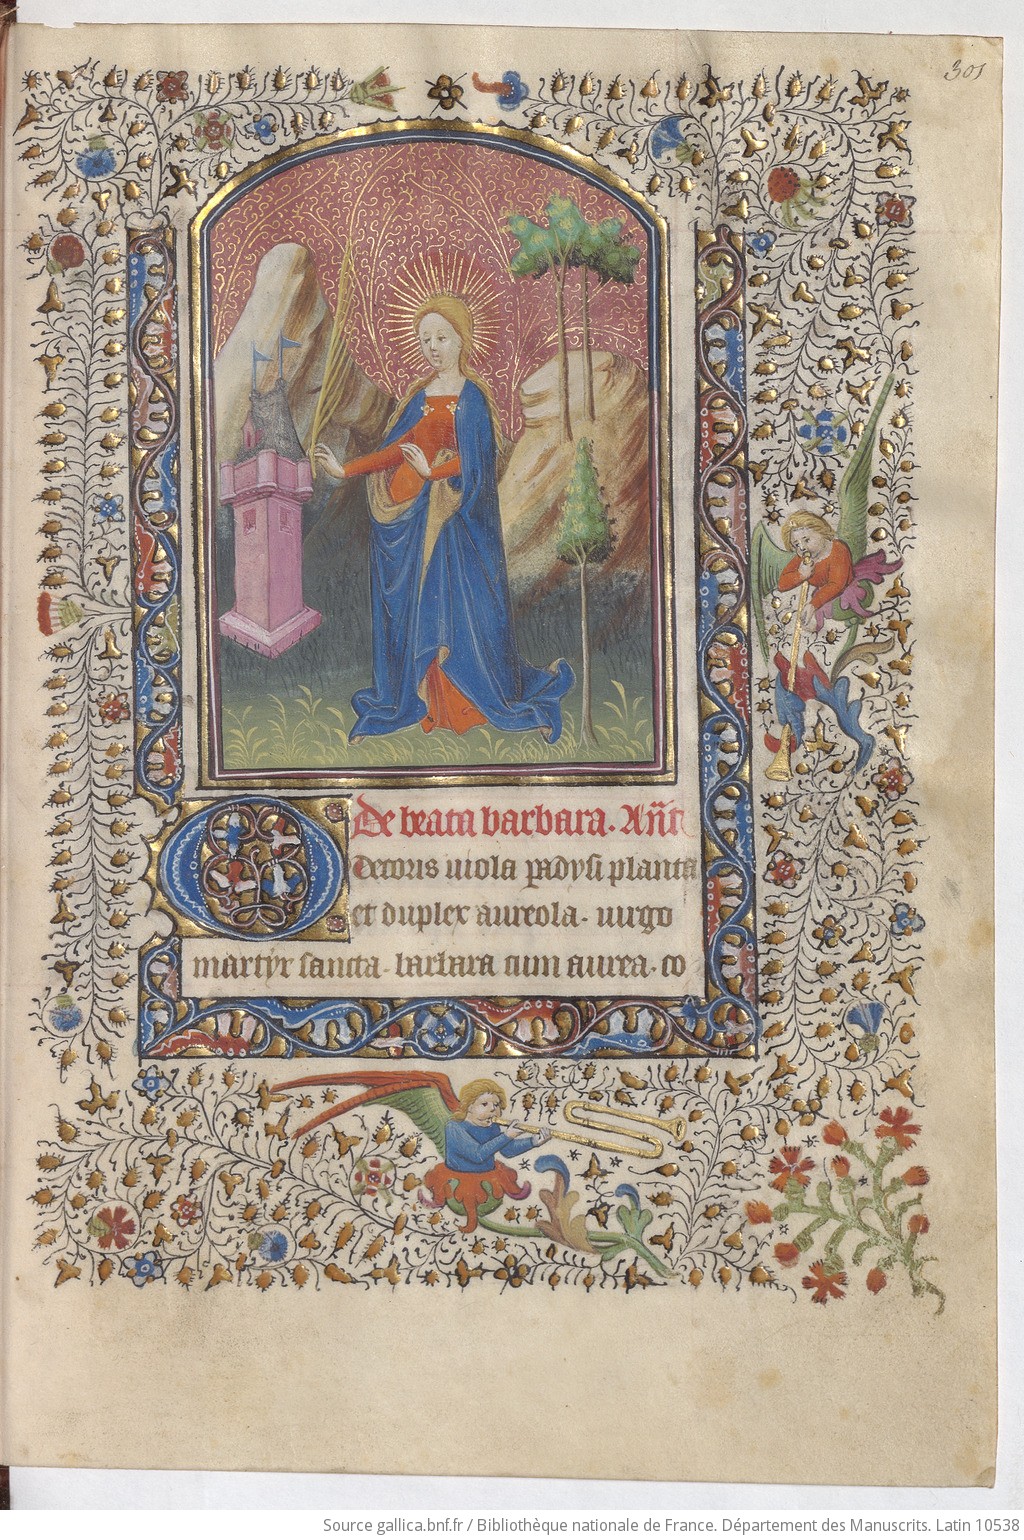 301
De beata barbara. Añt
Decoris uiola padysi planta
et duplex aureola. uirgo
martyr sancta. barbara cum aurea. co
Source gallica.bnf.fr / Bibliothèque nationale de France. Département des Manuscrits. Latin 10538